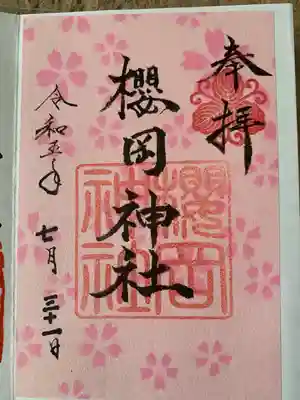 奉拝
櫻岡神社
令和五年
七月
三十一日
櫻岡
神社